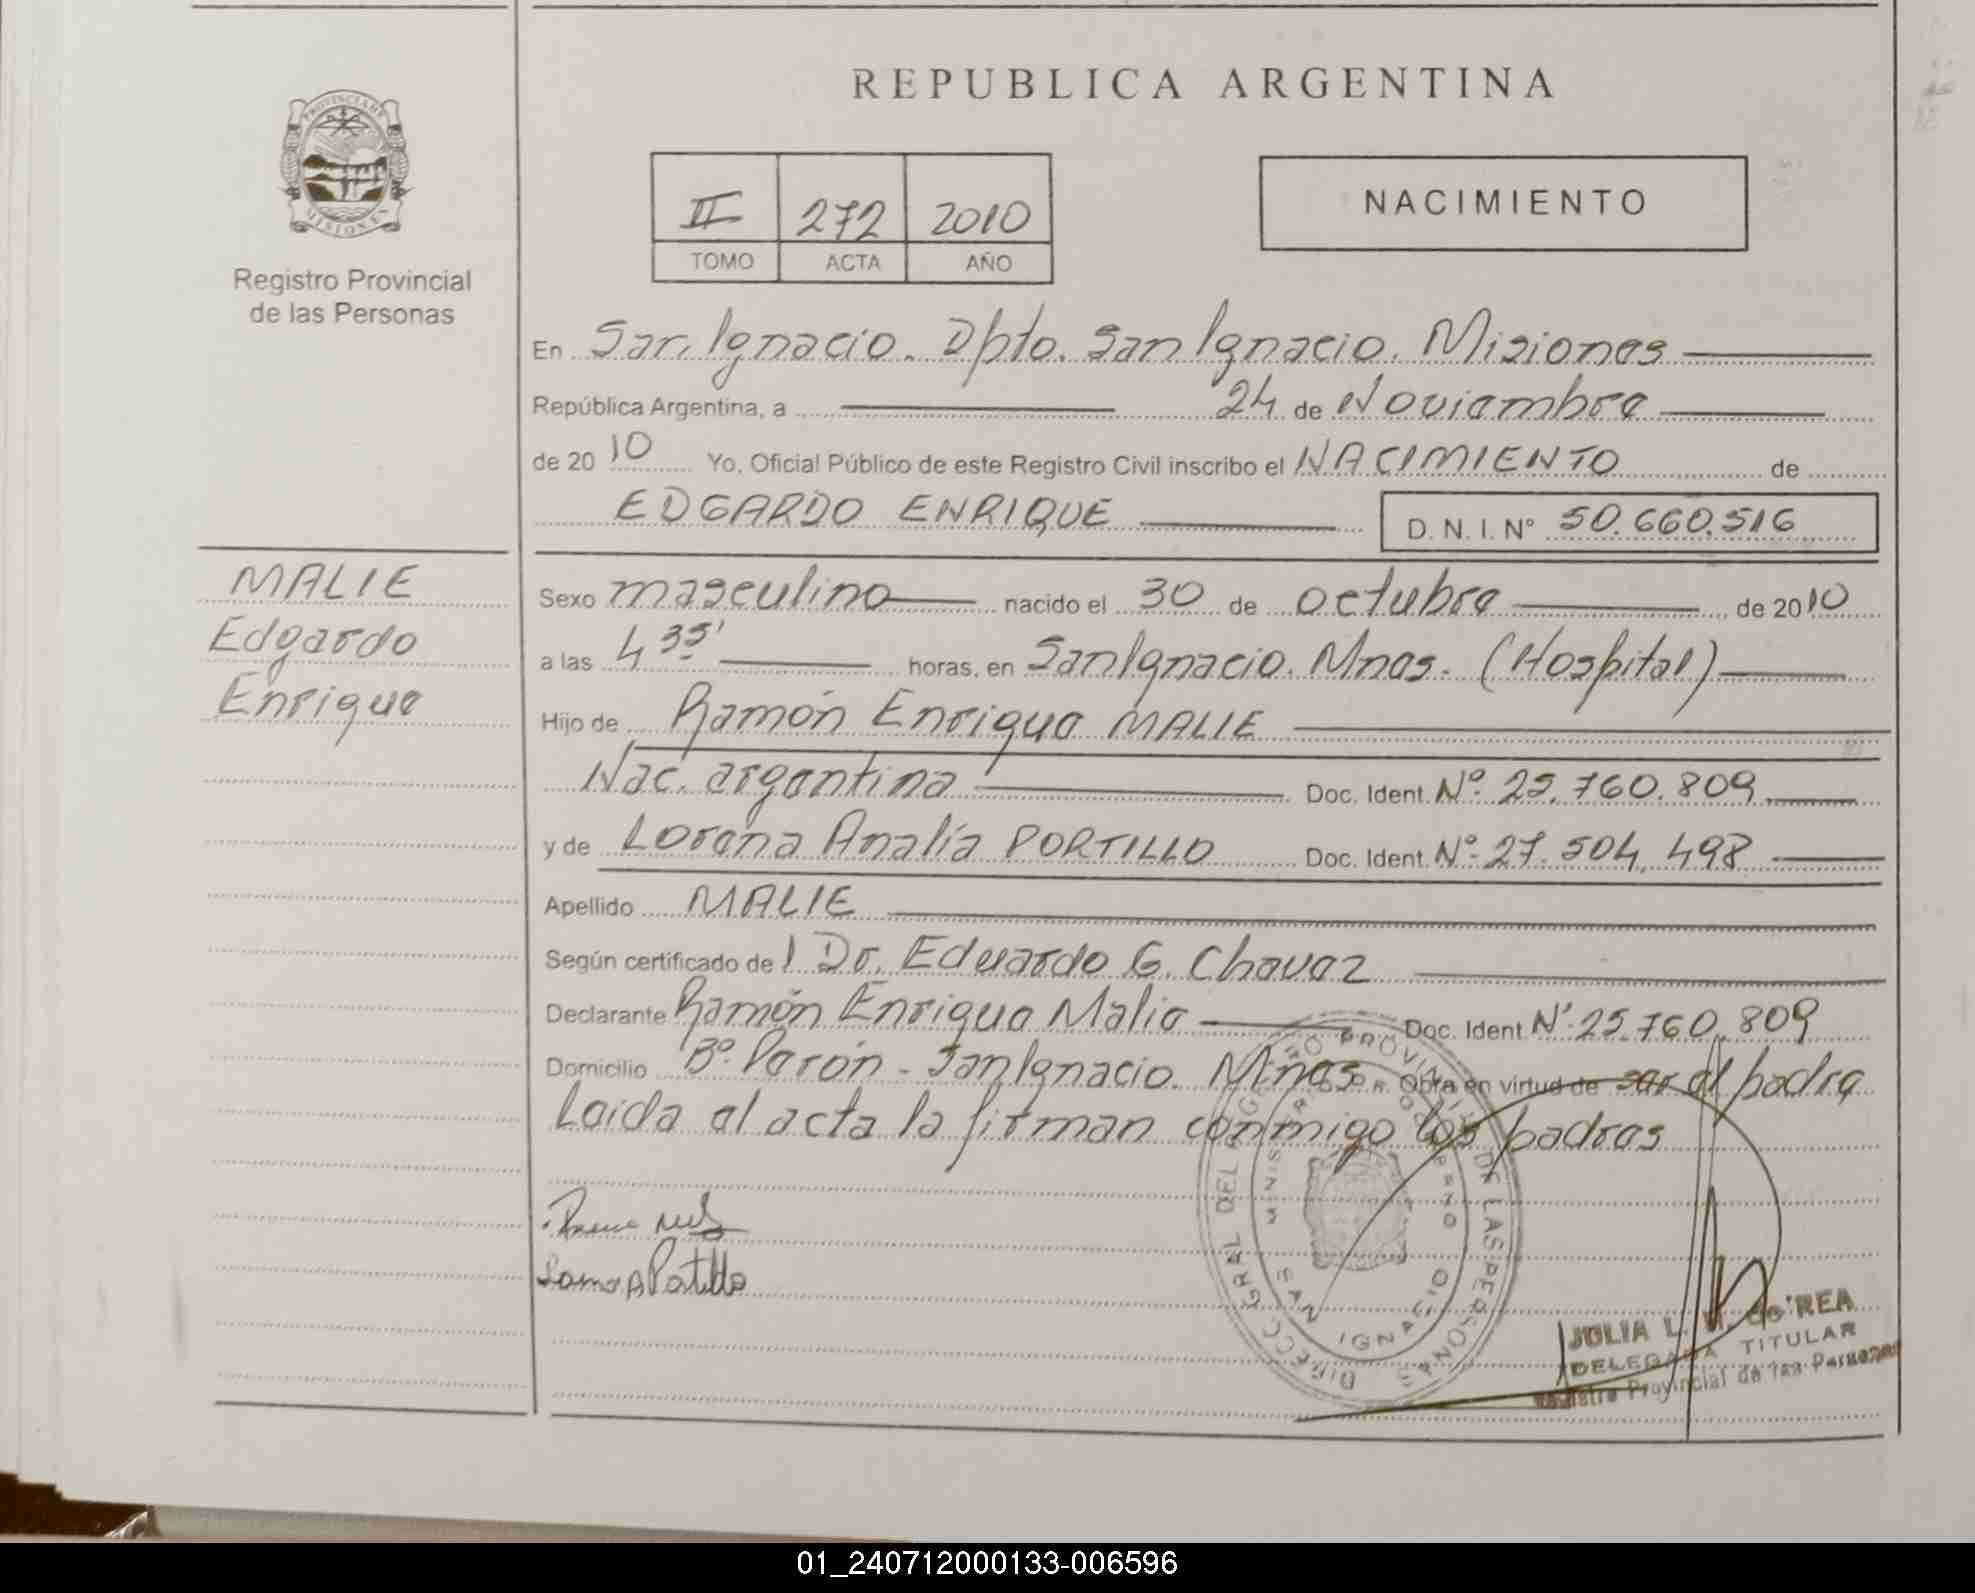 REPUBLICA ARGENTINA
PROVINCIA DE
MISIONES
Registro Provincial
de las Personas
II 272 2010
TOMO ACTA AÑO
NACIMIENTO
En San Ignacio. Dpto. San Ignacio. Misiones
República Argentina, a 24 de Noviembre
de 2010 Yo, Oficial Público de este Registro Civil inscribo el NACIMIENTO de
EDGARDO ENRIQUE D. N. I. N° 50.660.516
MALIE
Edgardo
Enrique
Sexo masculino nacido el 30 de octubre de 2010
a las 4 35' horas, en San Ignacio. Mnes. (Hospital)
Hijo de Ramón Enrique MALIE
Nac. argentina Doc. Ident. Nº 25.760.809
y de Lorena Analía PORTILLO Doc. Ident. Nº 27.504.498
Apellido MALIE
Según certificado del Dr. Eduardo G. Chavez
Declarante Ramón Enrique Malie Doc. Ident. Nº 25.760.809
Domicilio Bº Perón - San Ignacio. Mnes. Obra en virtud de ser el padre
Leida el acta la firman conmigo los padres
DIRECC. GRAL DEL REGISTRO PROVINCIAL DE LAS PERSONAS
MINISTERIO DE GOBIERNO
SAN IGNACIO
Portillo
JULIA L. de REA
DELEGADA TITULAR
Registro Provincial de las Personas
01_240712000133-006596